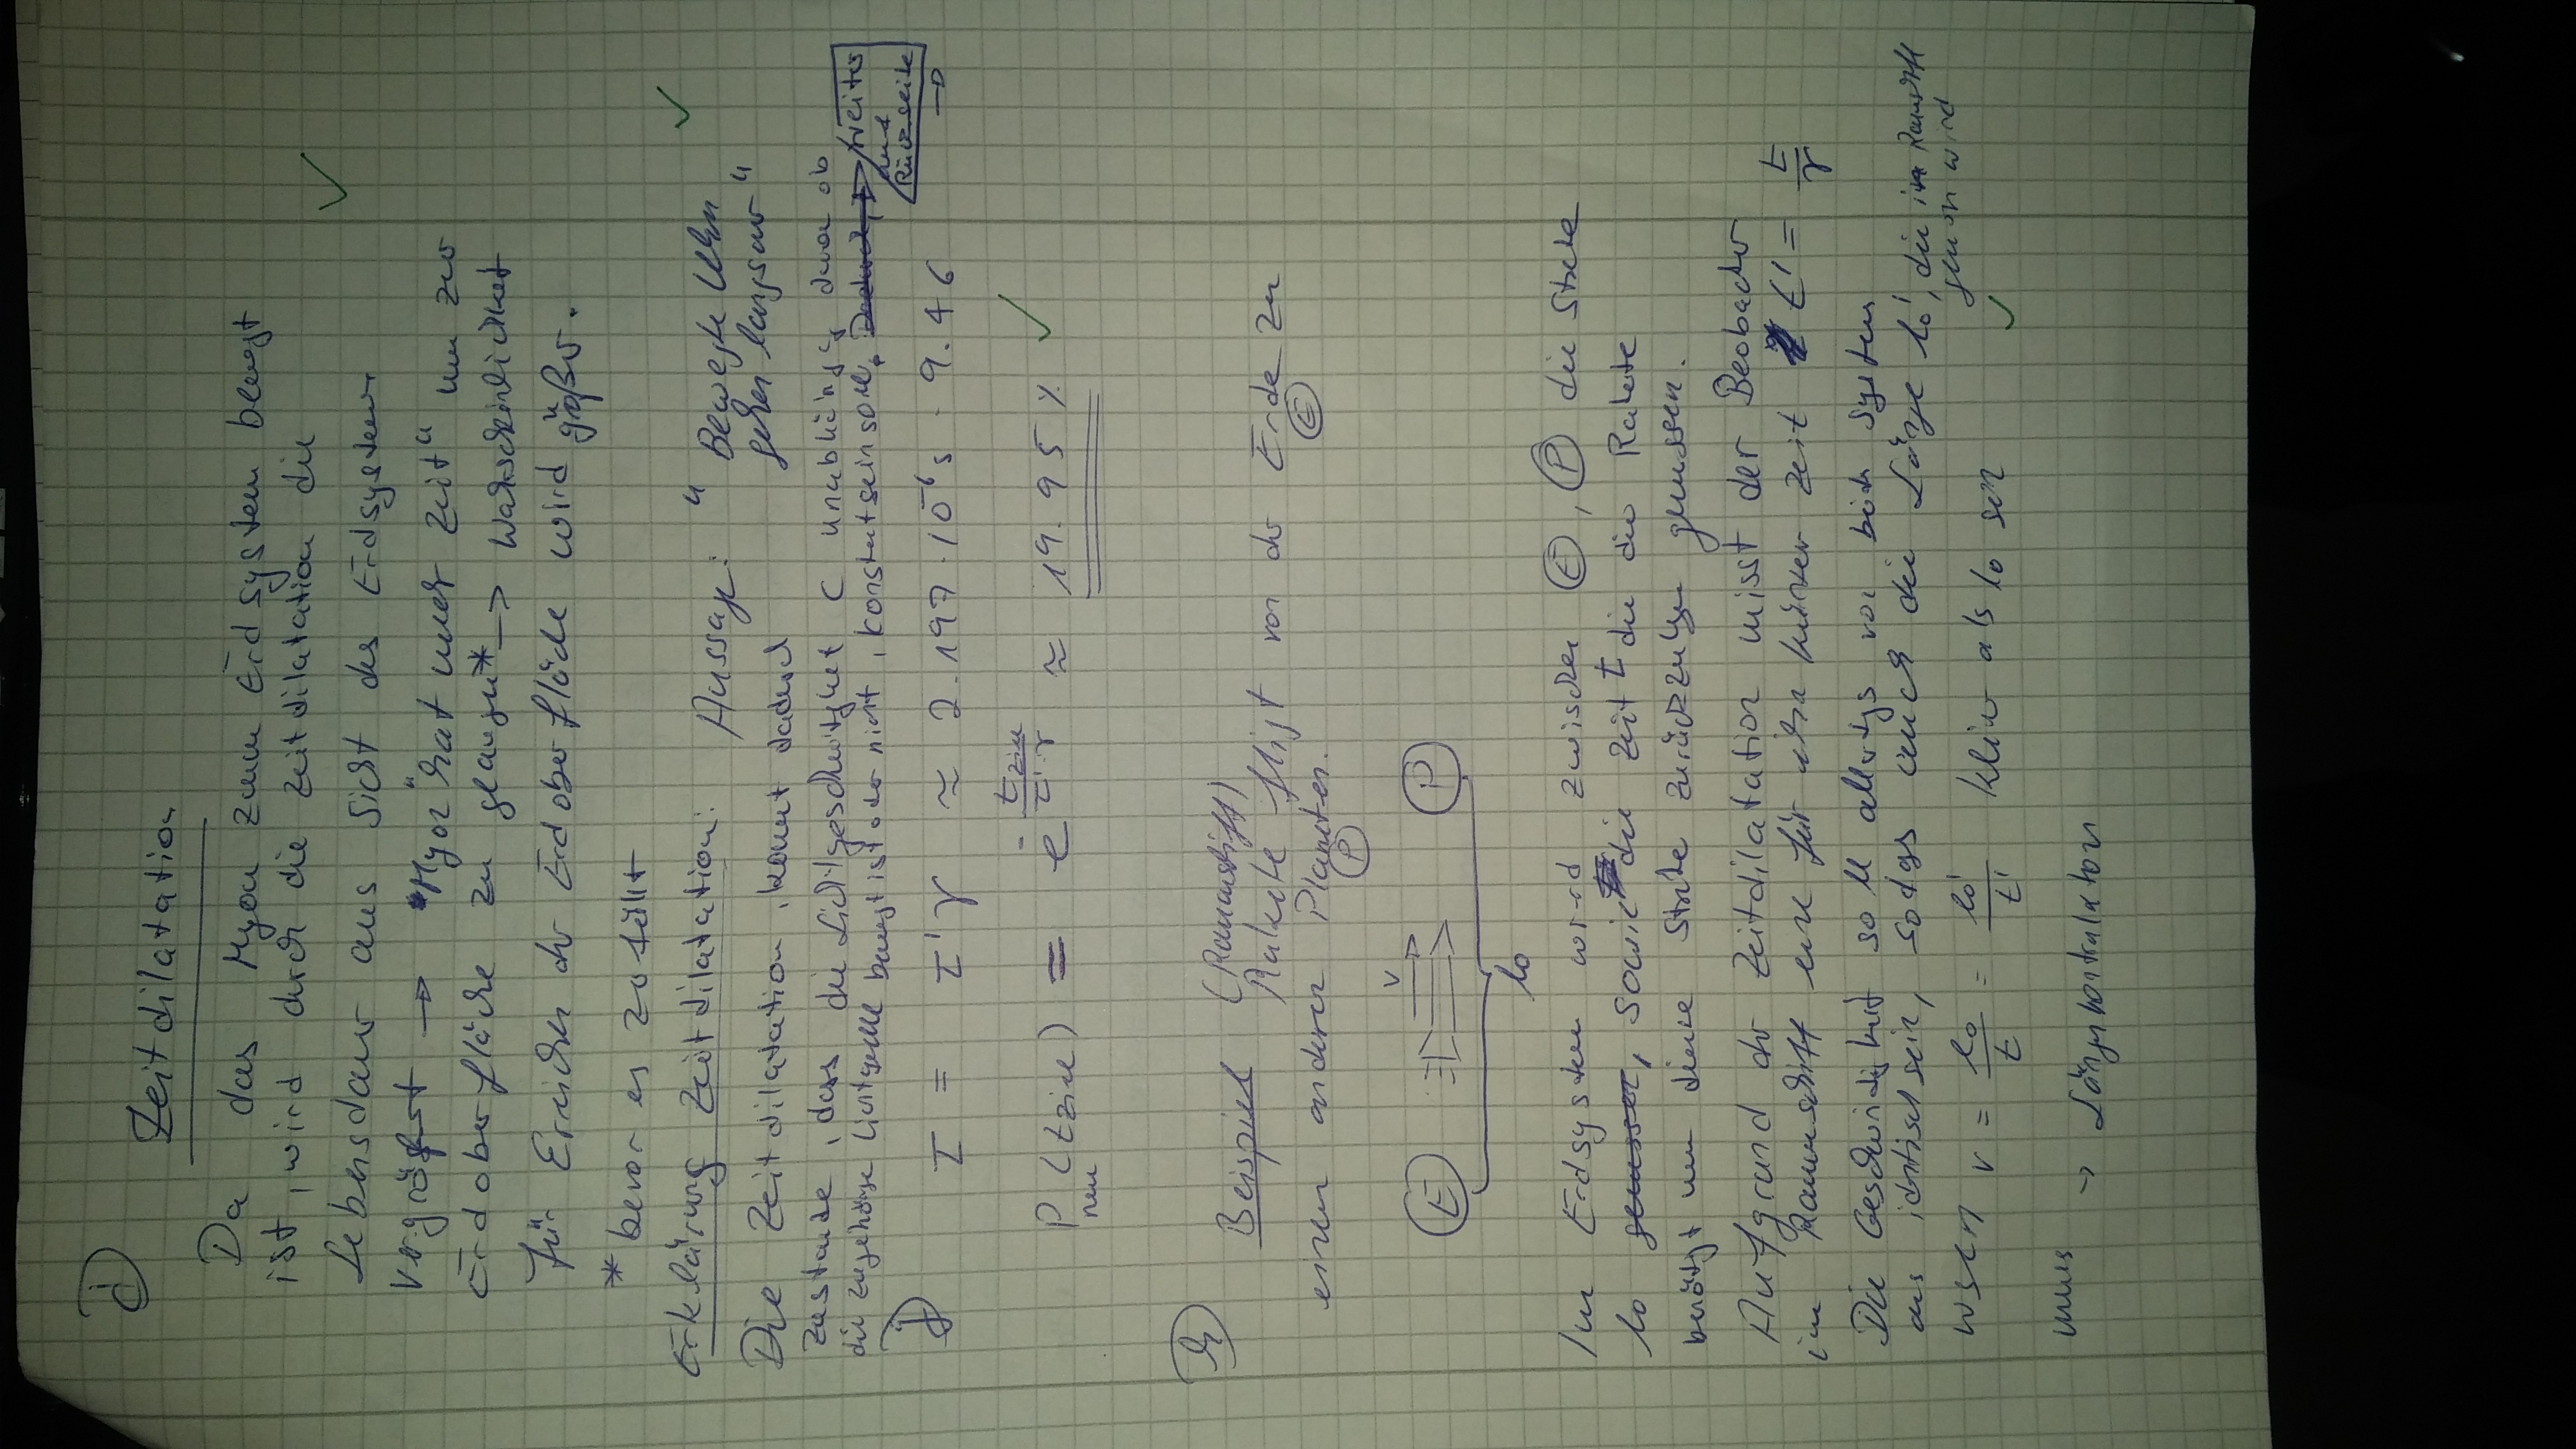 i)
Zeitdilatation
Da das Myon zum Erdsystem bewegt
ist, wird durch die Zeitdilatation die
Lebensdauer aus Sicht des Erdsystems
vergrößert → "Myon" hat mehr Zeit" um zur
Erdoberfläche zu glangen* → Wahrscheinlichkeit
für Erreichen der Erdoberfläche wird größer.
* bevor es zerfällt
Erklärung Zeitdilatation: Aussage: "Bewegte Uhren
gehen langsamer"
Die Zeitdilatation, kommt dadurch
zustande, dass die Lichtgeschwindigkeit c unabhängig davon ob
die zugehörige Lichtquelle bewegt ist oder nicht, konstant sein soll. weiter
auf
Rückseite
→
j)
τ = τ' γ ≈ 2.197 · 10⁻⁶ s · 9.46
P_neu (t_ziel) = e^(-t_ziel/(τ'·γ)) ≈ 19.95 %
k)
Beispiel (Raumschiff)
Rakete fliegt von der Erde zu
(E)
einem anderen Planeten.
(P)
v
E P
l₀
Im Erdsystem wird zwischen (E), (P) die Strecke
l₀ gemessen, sowie die Zeit t die die Rakete
benötigt um diese Strecke zurückzulegen gemessen.
Aufgrund der Zeitdilatation misst der Beobachter
im Raumschiff eine für ihn kürzere Zeit t' = t/γ
Die Geschwindigkeit soll allerdings von beiden Systemen
aus identisch sein, sodass auch die Länge l₀', die im Raumschiff
gemessen wird
wegen v = l₀/t = l₀'/t' kleiner als l₀ sein
muss → Längenkontraktion